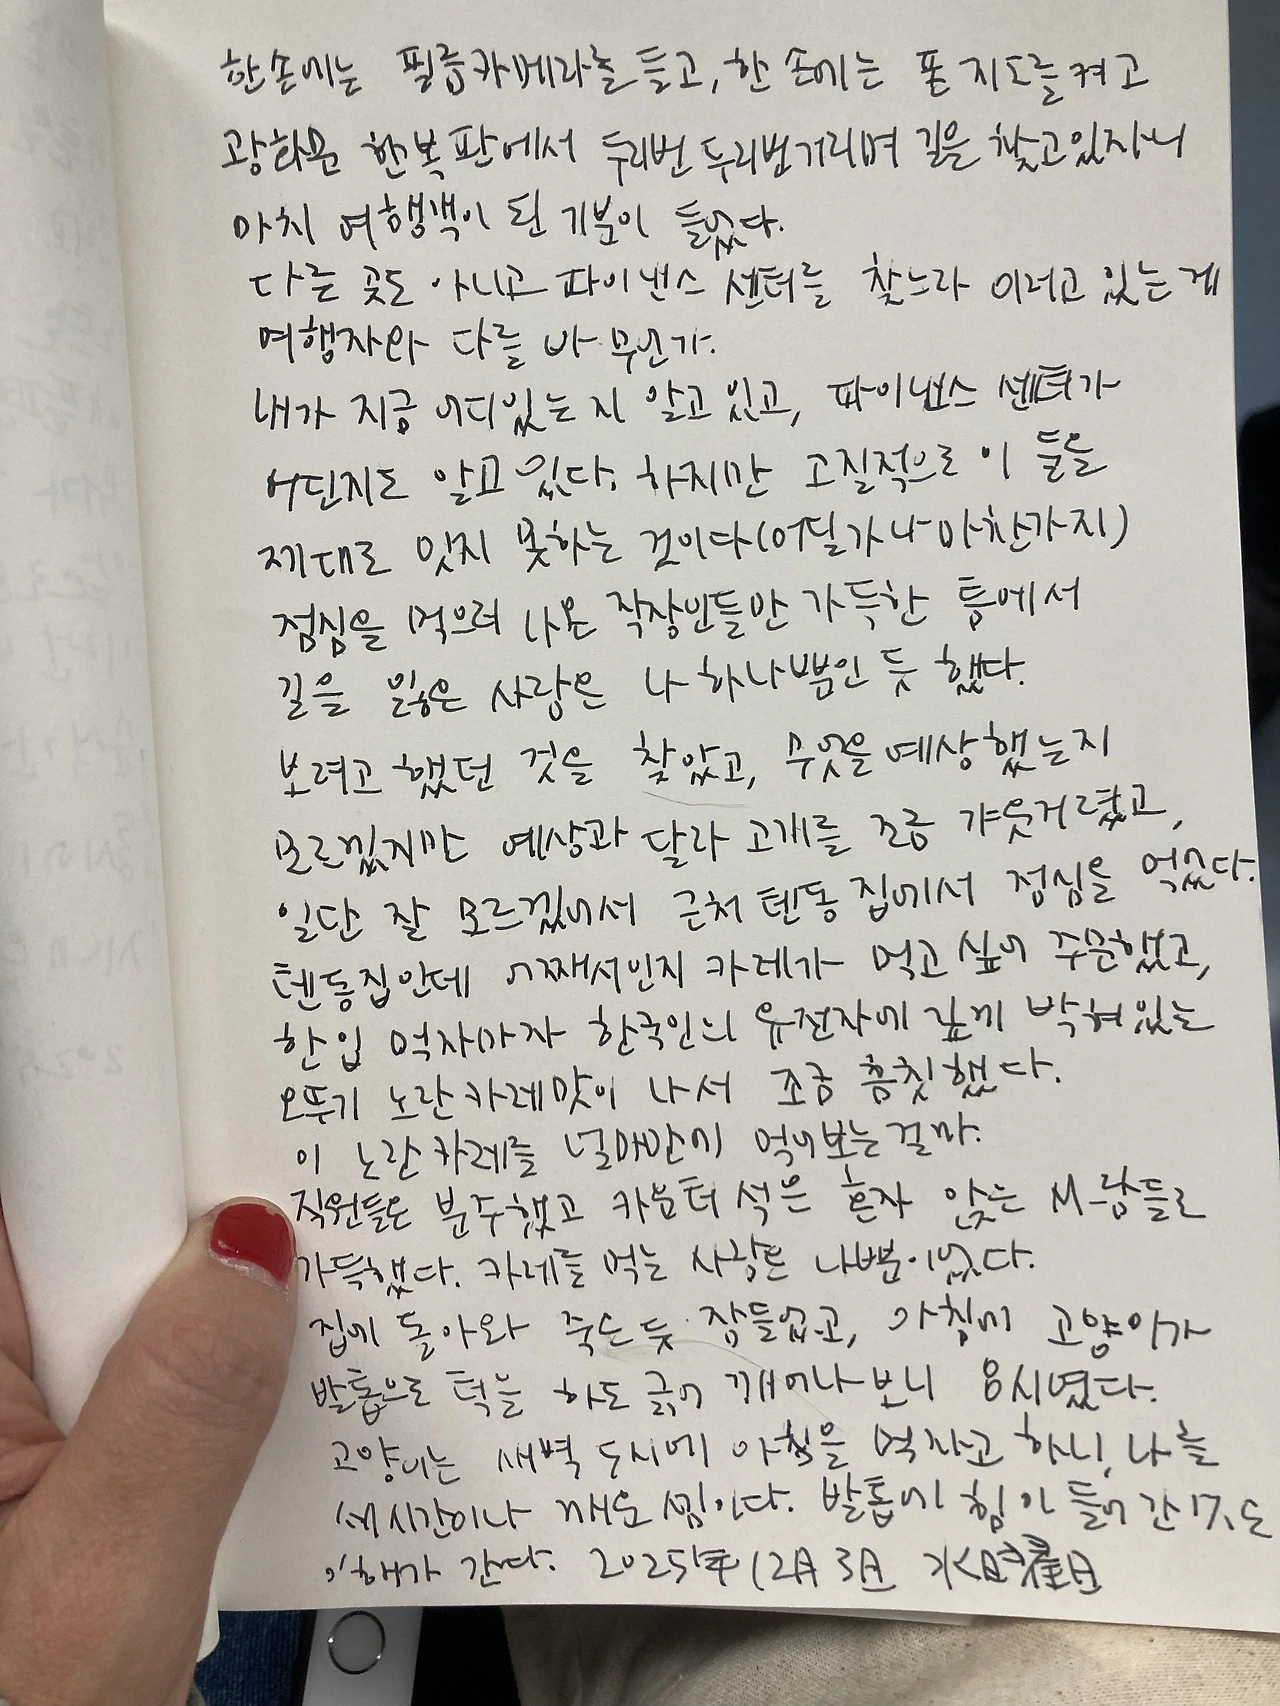 한손에는 필름카메라를 들고, 한 손에는 폰 지도를 켜고
광화문 한복판에서 두리번 두리번거리며 길을 찾고있자니
마치 여행객이 된 기분이 들었다.
다른 곳도 아니고 파이낸스 센터를 찾느라 이러고 있는 게
여행자와 다를 바 무언가.
내가 지금 어디있는지 알고 있고, 파이낸스 센터가
어딘지도 알고 있다. 하지만 고질적으로 이 둘을
제대로 잇지 못하는 것이다(어딜가나 마찬가지)
점심을 먹으러 나온 직장인들만 가득한 틈에서
길을 잃은 사람은 나 하나뿐인 듯 했다.
보려고 했던 것을 찾았고, 무엇을 예상했는지
모르겠지만 예상과 달라 고개를 조금 갸웃거렸고,
일단 잘 모르겠어서 근처 텐동 집에서 점심을 먹었다.
텐동집인데 어째서인지 카레가 먹고 싶어 주문했고,
한입 먹자마자 한국인의 유전자에 깊게 박혀있는
오뚜기 노란카레맛이 나서 조금 흠칫했다.
이 노란카레를 얼마만에 먹어보는걸까.
직원들은 분주했고 카운터 석은 혼자 앉는 사람들로
가득했다. 카레를 먹는 사람은 나뿐이었다.
집에 돌아와 죽은 듯 잠들었고, 아침에 고양이가
발톱으로 턱을 하도 긁어 깨어나보니 8시였다.
고양이는 새벽 5시에 아침을 먹자고 하니, 나를
세시간이나 깨운 셈이다. 발톱에 힘이 들어간 것도
이해가 간다. 2025年 12月 3日 水曜日